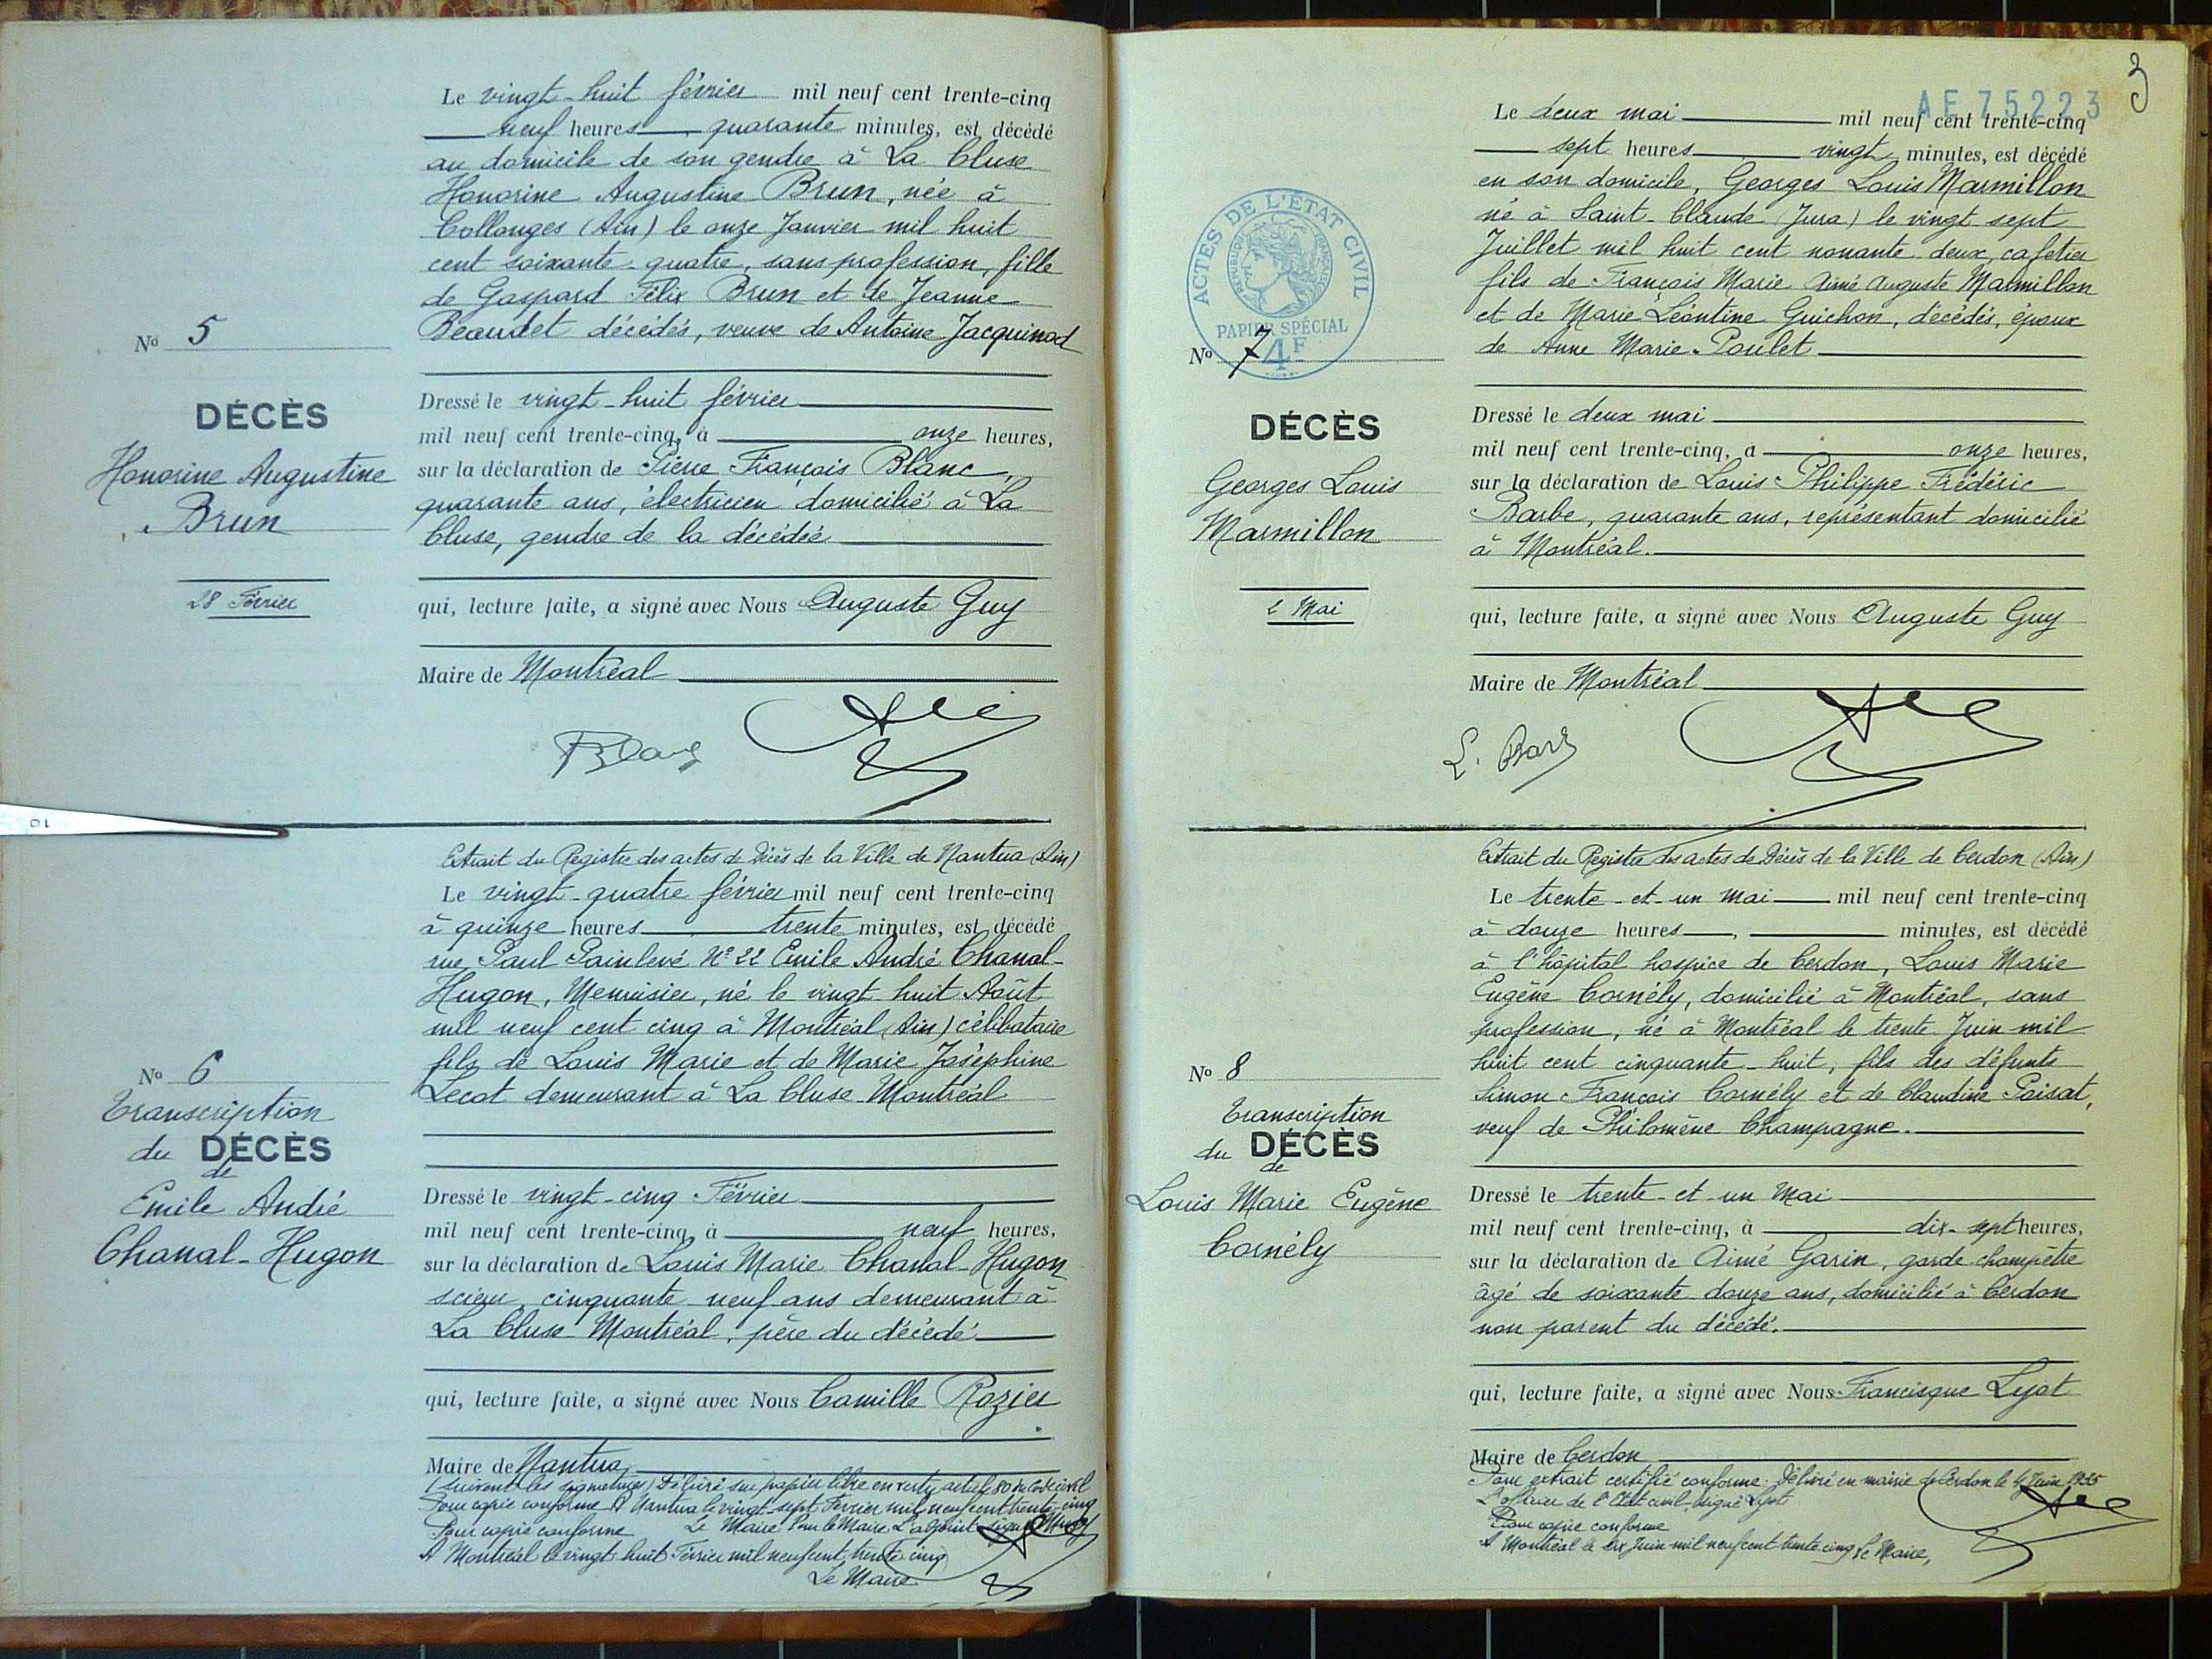 Le vingt-huit février mil neuf cent trente-cinq
neuf heures quarante minutes, est décédé
au domicile de son gendre à La Cluse
Honorine Augustine Brun, née à
Collonges (Ain) le onze Janvier mil huit
cent soixante-quatre, sans profession, fille
de Gaspard Félix Brun et de Jeanne
Beaudet décédés, veuve de Antoine Jacquinod
No 5
DÉCÈS
Honorine Augustine
Brun
28 Février
Dressé le vingt-huit février
mil neuf cent trente-cinq, à onze heures,
sur la déclaration de Pierre François Blanc,
quarante ans, électricien domicilié à La
Cluse, gendre de la décédée
qui, lecture faite, a signé avec Nous Auguste Guy
Maire de Montréal
Blanc
Extrait du Registre des actes de Décès de la Ville de Nantua (Ain)
Le vingt-quatre février mil neuf cent trente-cinq
à quinze heures trente minutes, est décédé
rue Paul Painlevé No 22 Emile André Chanal-
Hugon, Menuisier, né le vingt huit Août
mil neuf cent cinq à Montréal (Ain) célibataire
fils de Louis Marie et de Marie Joséphine
Lecot demeurant à La Cluse-Montréal
No 6
Transcription
du DÉCÈS
de
Emile André
Chanal-Hugon
Dressé le vingt-cinq Février
mil neuf cent trente-cinq, à neuf heures,
sur la déclaration de Louis Marie Chanal-Hugon
scieur, cinquante-neuf ans demeurant à
La Cluse-Montréal, père du décédé
qui, lecture faite, a signé avec Nous Camille Rozier
Maire de Nantua
(suivent les signatures) Délivré sur papier libre en vertu article 80 du Code civil
Pour copie conforme A Nantua le vingt-sept Février mil neuf cent trente-cinq
Le Maire Pour le Maire L'adjoint signé
Pour copie conforme
A Montréal le vingt huit Février mil neuf cent trente cinq
Le Maire
3
AE 75223
Le deux mai mil neuf cent trente-cinq
sept heures vingt minutes, est décédé
en son domicile, Georges Louis Marmillon
né à Saint-Claude (Jura) le vingt sept
Juillet mil huit cent nonante-deux, cafetier
fils de François Marie Aimé Auguste Marmillon
et de Marie Léontine Guichon, décédés, époux
de Anne Marie Poulet
ACTES DE L'ÉTAT CIVIL
RÉPUBLIQUE FRANÇAISE
PAPIER SPÉCIAL
4F
No 7
DÉCÈS
Georges Louis
Marmillon
2 Mai
Dressé le deux mai
mil neuf cent trente-cinq, à onze heures,
sur la déclaration de Louis Philippe Frédéric
Barbe, quarante ans, représentant domicilié
à Montréal.
qui, lecture faite, a signé avec Nous Auguste Guy
Maire de Montréal
L. Barbe
Extrait du Registre des actes de Décès de la Ville de Cerdon (Ain)
Le trente-et-un mai mil neuf cent trente-cinq
à douze heures, minutes, est décédé
à l'hôpital hospice de Cerdon, Louis Marie
Eugène Cornély, domicilié à Montréal, sans
profession, né à Montréal le trente Juin mil
huit cent cinquante-huit, fils des défunts
Simon François Cornély et de Claudine Poisat,
veuf de Philomène Champagne.
No 8
Transcription
du DÉCÈS
de
Louis Marie Eugène
Cornély
Dressé le trente-et-un Mai
mil neuf cent trente-cinq, à dix-sept heures,
sur la déclaration de Aimé Garin, garde champêtre
âgé de soixante-douze ans, domicilié à Cerdon
non parent du décédé.
qui, lecture faite, a signé avec Nous Francisque Lyot
Maire de Cerdon
Pour extrait certifié conforme. Délivré en mairie de Cerdon le 4 Juin 1935
L'officier de l'Etat civil, signé Lyot
Pour copie conforme
A Montréal le six Juin mil neuf cent trente cinq Le Maire,